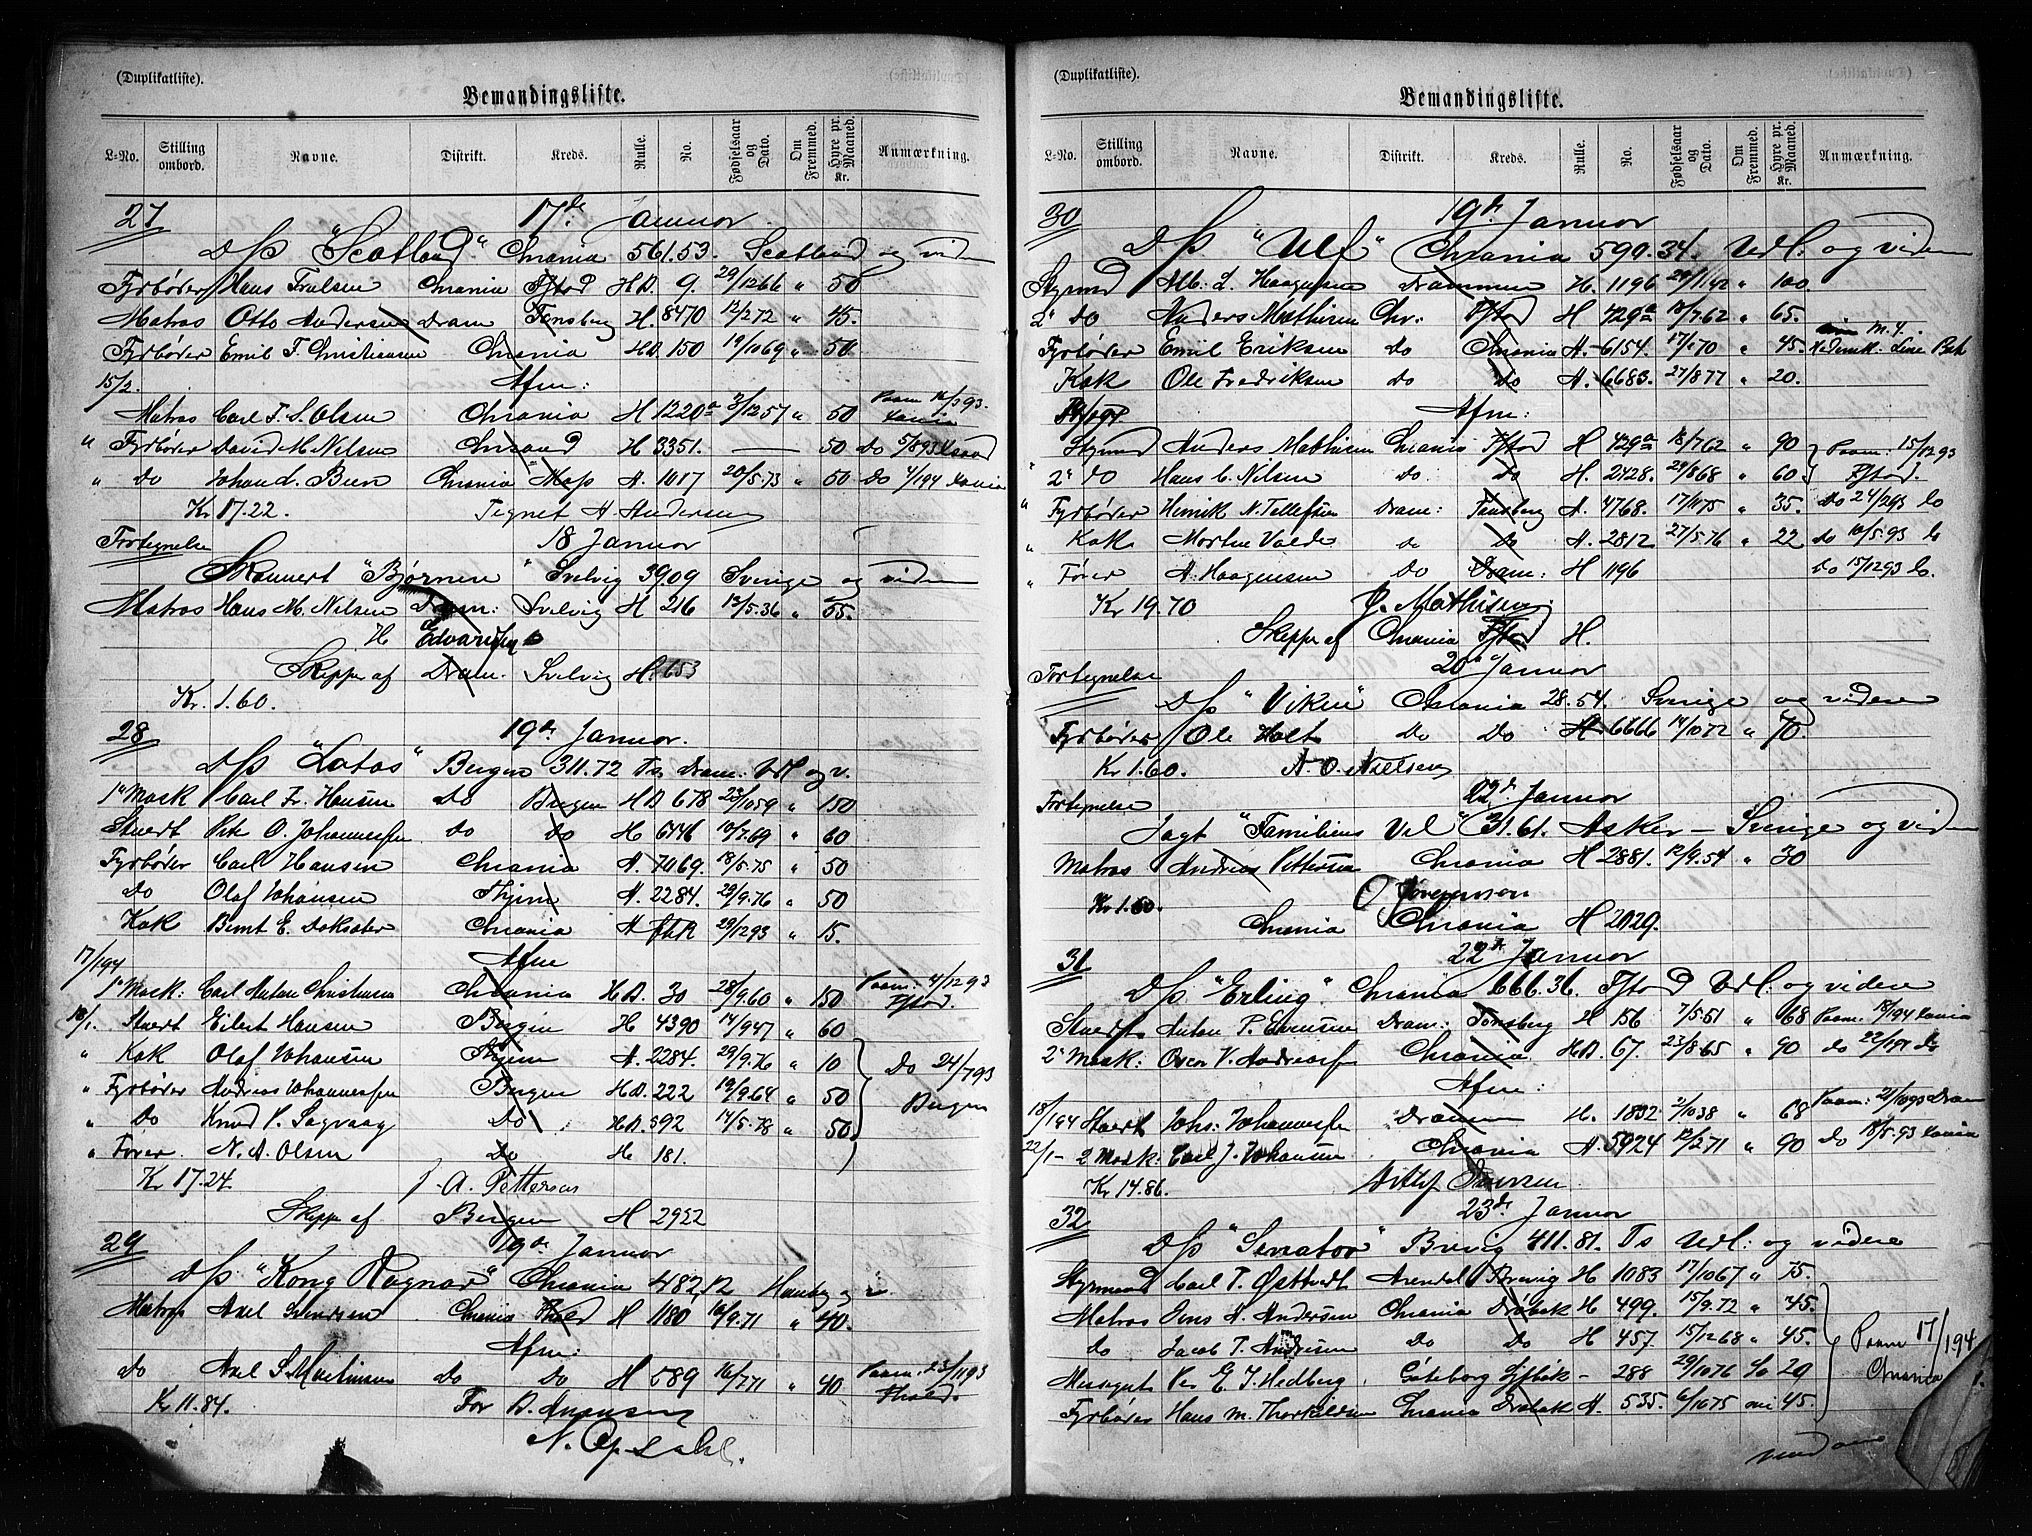 (Duplikatliste).
Bemandingsliste.
L=No. Stilling ombord. Navne. Distrikt. Kreds. Rulle. No. Fødselsaar og Dato. Om Fremmed. Hyre pr. Maaned. Kr. Anmærkning.
27 17de Januar
D/S "Scotland" Chrania 561.53 Scotland og viden
Fyrbøder Hans Frulsen Chrania Fstad H.D. 9. 29/12 66 " 50
Matros Otto Andersen Dram Tønsberg H. 8470 12/2 72 " 45.
Fyrbøder Emil T. Christiansen Chrania H.D. 150 19/10 69 " 50
15/2. Afm:
Matros Carl F. S. Olsen Chrania H 1220a 3/12 57 " 50 Paam 16/3 93. Xania
" Fyrbøder David M. Nilsen Chrsand H 3351. — 50 Do 5/8 93 Xsand
" Do Johan L. Bien Chrania Moss A. 1017 20/5.73 " 50 Do 4/1 94 Xania
Kr. 17.22. Tegnet A. Andersen
Fortegnelse 18 Januar
Skonnert "Bjørnen" Svelvig 39.09 Sverige og viden
Matros Hans M. Nilsen Dram: Svelvig H 216 13/5.36 " 55.
H Edvardsen
Skipper af Dram. Svelvig H. 653
Kr. 1.60.
28 19de Januar.
D/S "Lotos" Bergen 311.72 Ts Dram: Udl og v.
1ste Mask Carl Fr. Hansen Do Bergen H.D 678 23/10 59 " 150
Stuert Peter O. Johannessen Do Do H 6146 12/7.69 " 60
Fyrbøder Carl Hansen Chrania A. 7069. 18/5.75 " 50
Do Olaf Johansen Thjem A. 2284. 29/9.76 " 50
Kok Bernt E. Doksater Chrania A 29/12 93 " 15.
17/1 94 Afm
1ste Mask: Carl Anton Christiansen Chrania H.D. 30 28/9.60 " 150 Paam: 4/12 93 Fstad.
18/1. Stuert Eilert Hansen Bergen H 4390 14/9 47 " 60
" Kok Olaf Johansen Thjem A. 2284. 29/9.76 " 10 Do 24/7 93
" Fyrbøder Andreas Johannessen Bergen H.D. 222 19/9.64 " 50 Bergen
" Do Knud P. Sagvaag Do H.D. 592 14/5.78 " 50
" Fører N. A. Olsen Do H 181.
Kr 17.24. J. A. Petterson
Skipper af Bergen H 2922
29 19de Januar
D/S "Kong Ragnar" Chrania 482.12 Hamburg og v
Matros Axel Svendsen Chrania Thald H 1180 16/9.71 " 40.
Afm:
Do Axel S. Martinsen Do Do H 589 16/7 71 " 40 Paam: 23/11 93 Fhald.
Kr 11.84. For B. Anonsen
N. Opsahl.
(Duplikatliste).
Bemandingsliste.
L=No. Stilling ombord. Navne. Distrikt. Kreds. Rulle. No. Fødselsaar og Dato. Om Fremmed. Hyre pr. Maaned. Kr. Anmærkning.
30 19de Januar
D/S "Ulf" Chrania 590.34. Udl. og viden
Styrmd Alb: L. Haagensen Drammen H. 1196 29/1.42 " 100
2" Do Anders Mathisen Chr: Fstad H 429a 18/7.62 " 65.
Fyrbøder Emil Eriksen Do Chrania A. 6154. 17/1 70 " 45.
Kok Ole Fredriksen Do Do A. 6683. 27/8 77 " 20.
Afm:
Styrmd Anders Mathisen Chrania Fstad H 429a 18/7 62 " 90 Paam: 15/12 93
" 2" Do Hans C. Nilsen Do Do H. 2428. 29/8 68 " 60 Fstad.
" Fyrbøder Henrik N. Tellefsen Dram: Tønsberg A. 4768. 17/11 75 " 35. Do 24/12 93 Do
" Kok Morten Valde Do Do A. 2812 27/5.76 " 22 Do 10/5.93 Do
" Fører A. Haagensen Do Dram: H 1196 Do 15/12 93 Do.
Kr 19.70 J. Mathisen
Skipper af Chrania Fstad H.
Fortegnelse 20de Januar
D/S "Viken" Chrania 28.54. Sverige og videre
Fyrbøder Ole Holt Do Do A 6666 14/10 72 " 70
Kr 1.60. A. O. Nielsen
Fortegnelse 22de Januar
Jagt "Familiens Vel" 31.61. Asker — Sverige og viden
Matros Andreas Petterson Chrania H 2881. 12/9.54 " 30
Kr 1.60. O Jørgenson
Chrania Chrania H 2029.
31 22de Januar
D/S "Erling". Chrania 666.36. Fstad Udl: og videre
Stuert Anton P. Evensen Dram: Tønsberg H 156 7/5.51 " 68 Paam: 18/1 94 Xania
2" Mask: Oscar V. Andreassen Chrania H.D. 67. 23/8.65 " 90 do 22/1 94 do
Afm:
18/1 94 Stuert Johs: Johannessen Drammen H. 1832 2/10 38 " 68 Paam: 21/10 93 Dram
22/1 — 2 Mask: Carl J. Johansen Chrania A. 5924 12/2.71 " 90 do 18/5.93 Xania
Kr 14.86. Ditlef
32 23de Januar
D/S "Senator" Brevig 411.81. Ts Udl: og videre
Styrmand Carl T. Østtvedt Arendal Brevig H 1083 17/10 67 " 75.
Matros Jens A. Andersen Chrania Drøbak H 499. 15/9.72 " 45.
do Jacob T. Andersen Do Do H 457. 15/12 68 " 45. Paam 17/1 94
Messegut Per E. J. Hedberg. Gøteborg Lysekil — 288 29/10 76 Ja 20 Chrania
Fyrbøder Hans M. Thorkildsen Chrania Drøbak A. 535. 6/10 75 nei 45.